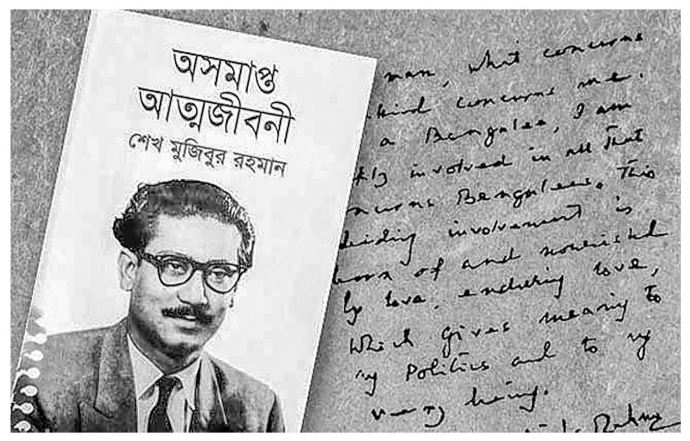 অসমাপ্ত
আত্মজীবনী
শেখ মুজিবুর রহমান
man, what concerns
concerns me.
a Bengalee, I am
involved in all that
Bengalees. This
involvement is
born of and nourished
by love, enduring love,
which gives meaning to
my politics and to my
very being.